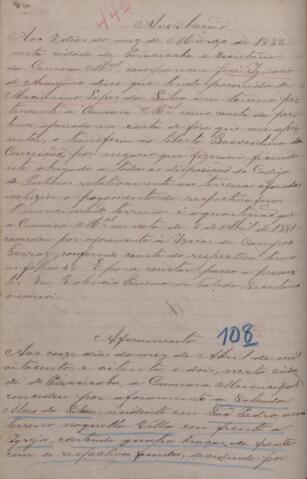 Averbação
Aos 2 dias do mez de Março de 1882
nesta cidade de Piracicaba e Secretaria
da Camara M.al compareceu José Ignacio
de e disse que tendo
Maximiano Lopes da Silva um terreno per-
tencente a Camara M.al como consta do
aforado na carta de fôro que me apre-
sentou, o transferiu ao liberto Boaventura da
Conceição, por negocio que fizeram, ficando
este obrigado a todas as disposições do Codigo
de Posturas relativamente aos terrenos aforados
o pagamento do respectivo foro.
O mencionado terreno é o que
a Camara M.al em data de 5 de Abril de 1881
concedeu por aforamento a Izaias de Campos
Ferraz, conforme consta do respectivo termo
as folhas 45. E para constar, passo a presen-
te. Eu, Bueno de Toledo, Secretario
o escrevi.
108
Aforamento
Aos onze dias do mez de Abril de mil
oitocentos e oitenta e dois, nesta cida-
de de Piracicaba, a Camara Municipal
concedeu por aforamento a Salvador
da Silva, residente em São Pedro, um
terreno naquella Villa com frente a
Igreja, contendo quatro braças de frente
com os respectivos fundos, dividindo por